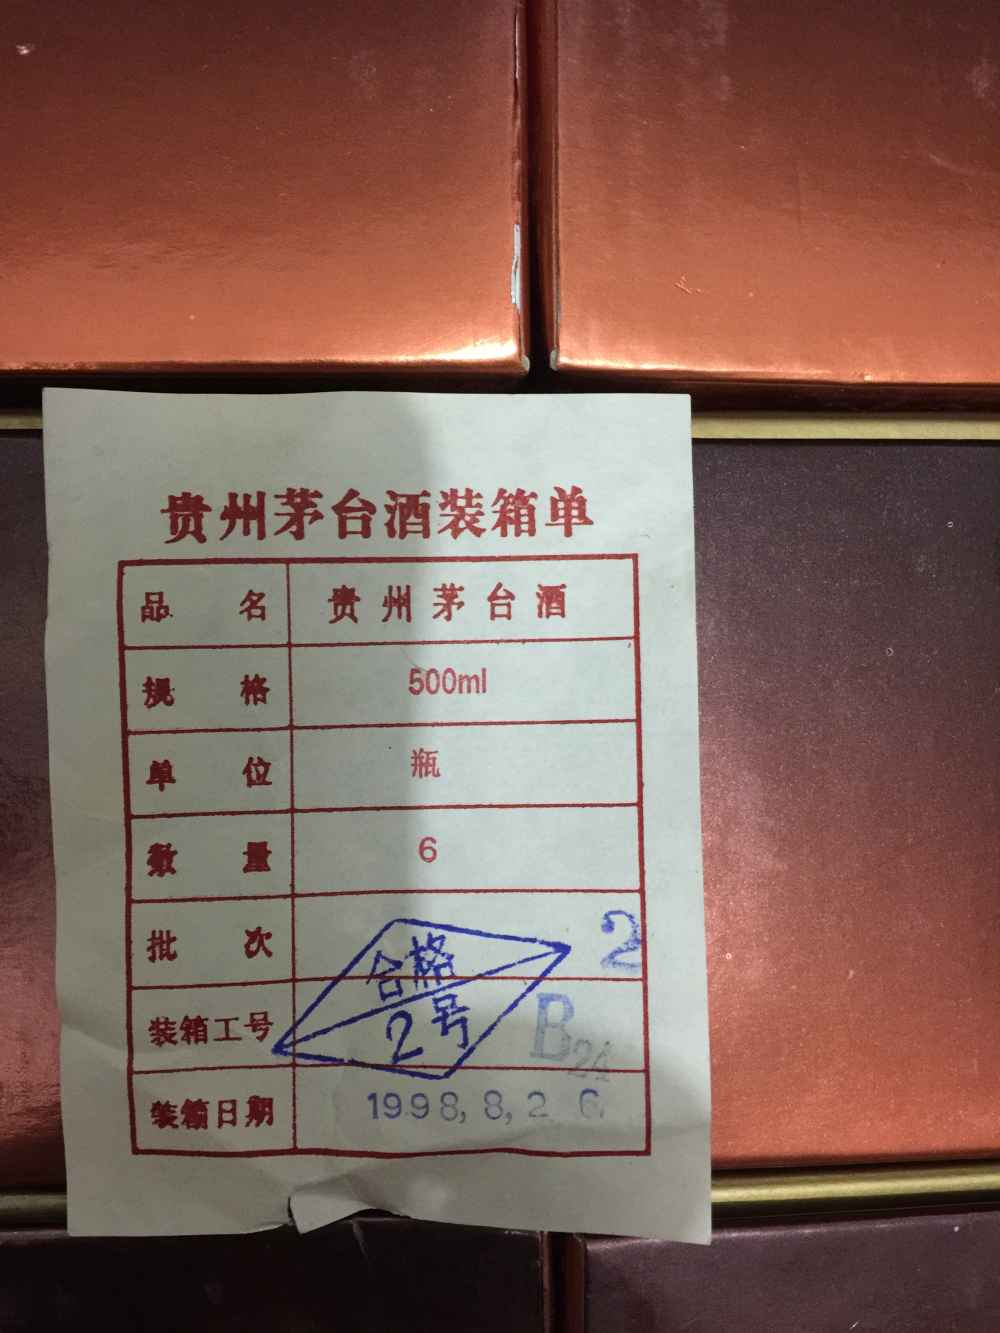 贵州茅台酒装箱单
品名 贵州茅台酒
规格 500ml
单位 瓶
数量 6
批次 2
合格
2号
装箱工号 B24
装箱日期 1998,8,26